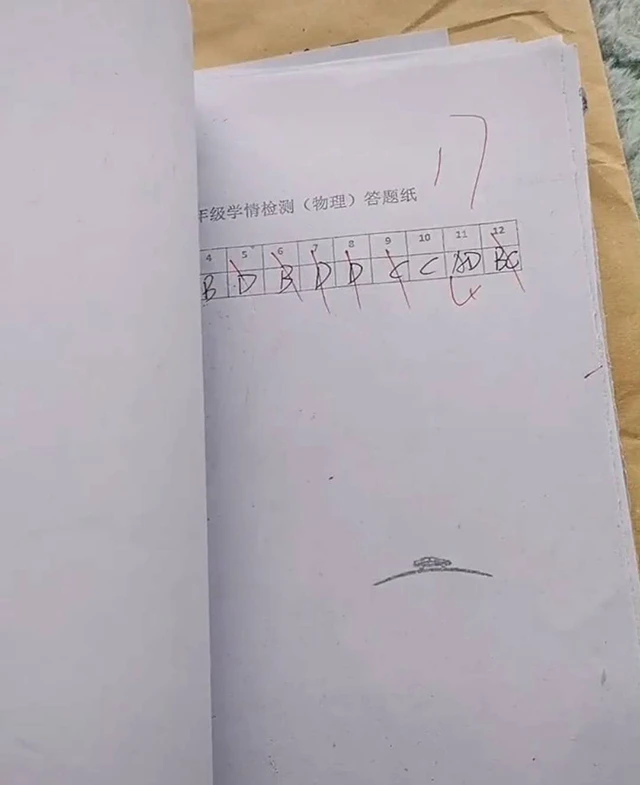 17
年级学情检测（物理）答题纸
4 5 6 7 8 9 10 11 12
B D B D D C C AD BC